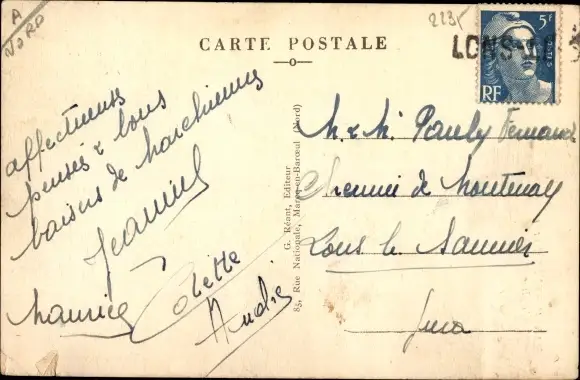 A
NORD
223
CARTE POSTALE
LONS-LE-S
5F
RF
affectueuses
pensées & bons
baisers de Marchiennes
Jeannine
Maurice Colette
André
G. Réant, Editeur
85, Rue Nationale, Marcq-en-Barœul (Nord)
M. & M. Pauly Fernand
Chemin de Montenay
Lons le Saunier
Jura